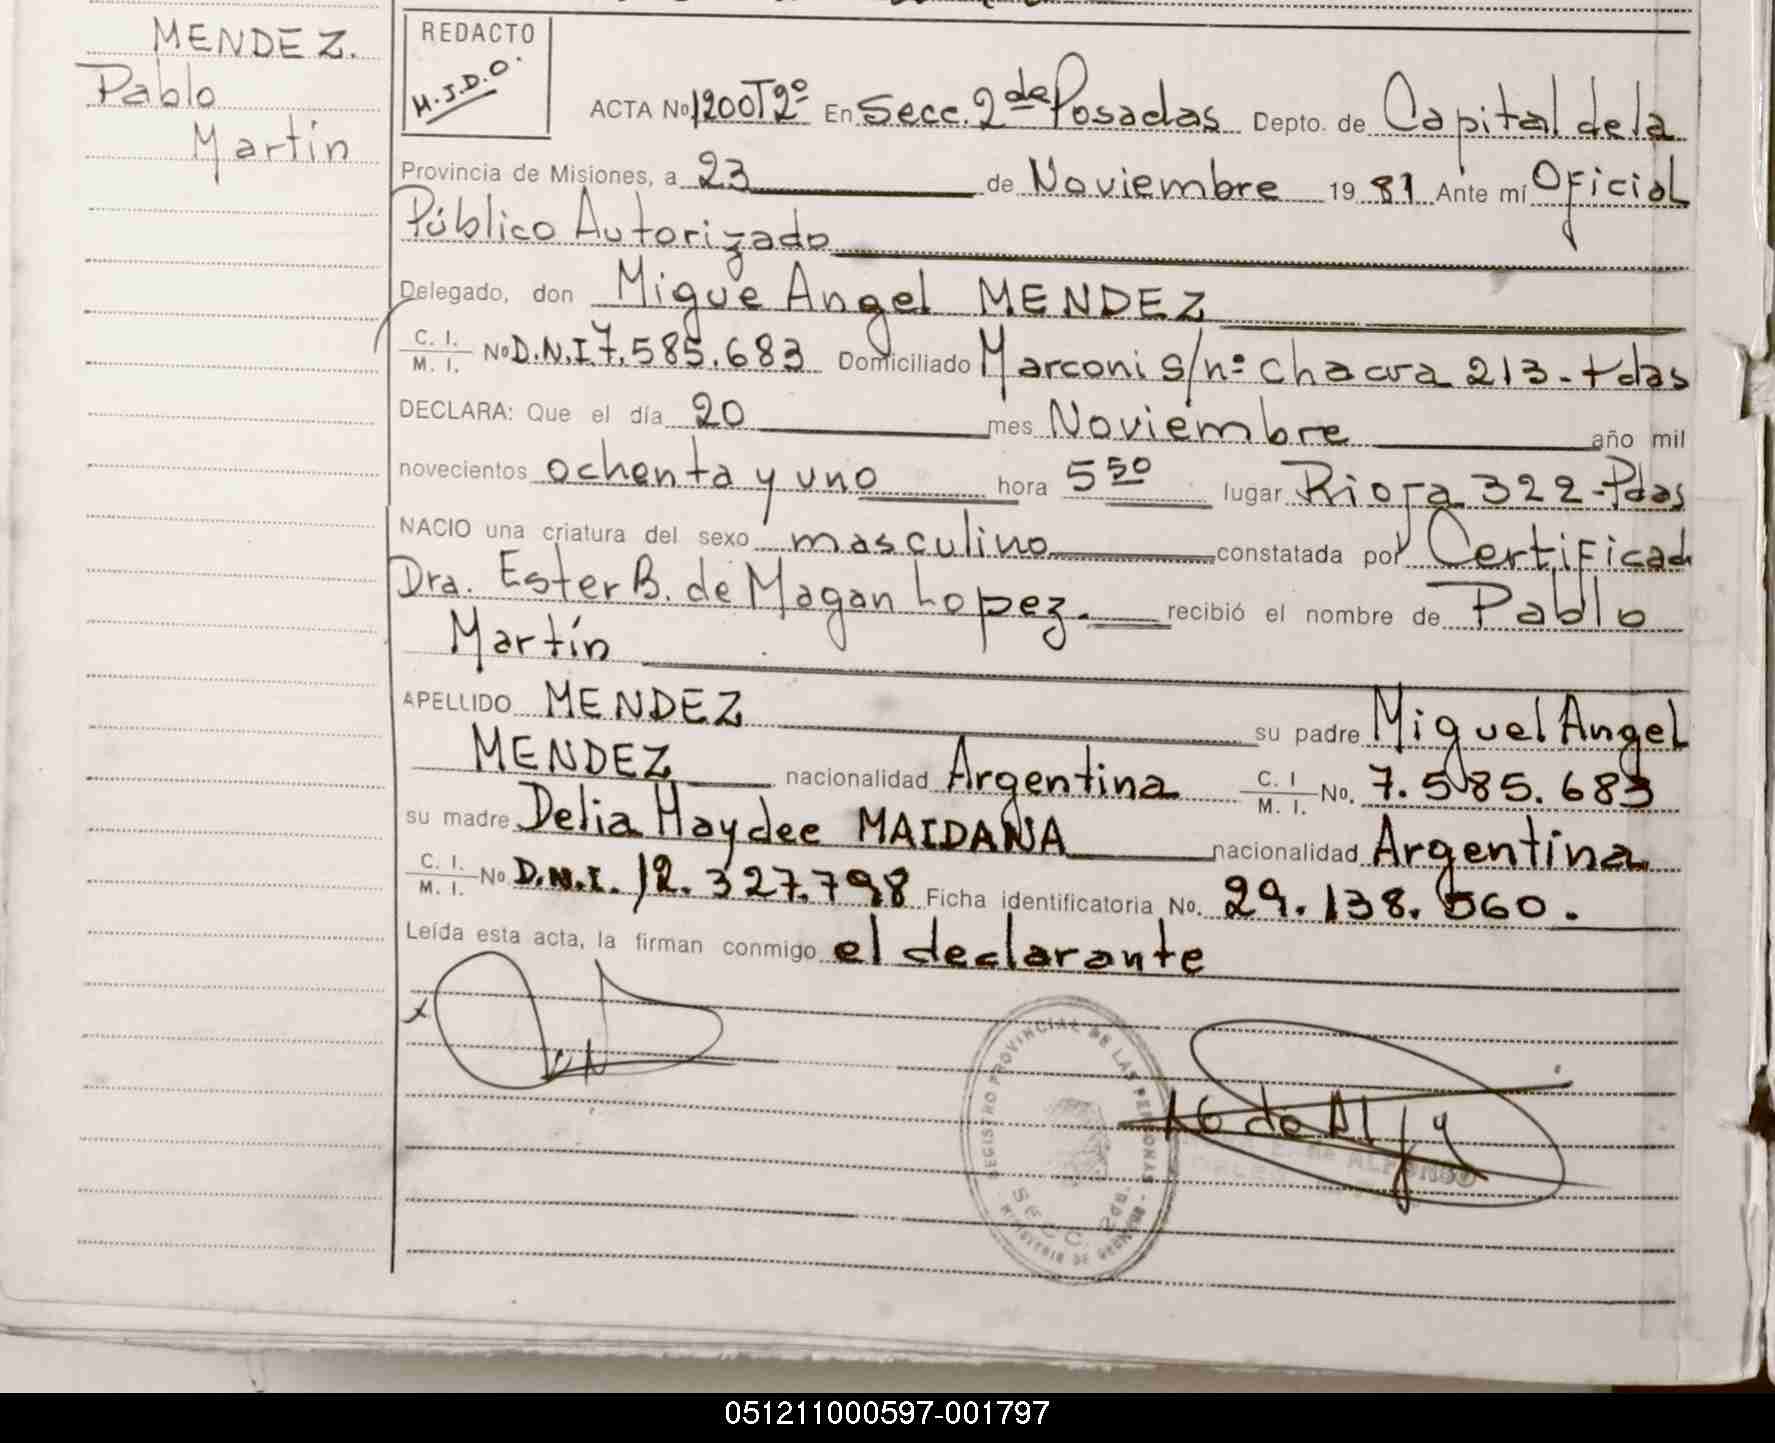 MENDEZ.
Pablo
Martín
REDACTO
M.J.D.O.
ACTA No 1200 T2º En Secc. 2da Posadas Depto. de Capital de la
Provincia de Misiones, a 23 de Noviembre 1981 Ante mí Oficial
Público Autorizado
Delegado, don Migue Angel MENDEZ
C. I. M. I. No D.N.I 7.585.683 Domiciliado Marconi s/nº chacra 213-Pdas
DECLARA: Que el día 20 mes Noviembre año mil
novecientos ochenta y uno hora 5 50 lugar Rioja 322-Pdas
NACIO una criatura del sexo masculino constatada por Certificad
Dra. Ester B. de Magan Lopez. recibió el nombre de Pablo
Martín
APELLIDO MENDEZ su padre Miguel Angel
MENDEZ nacionalidad Argentina C. I M. I. No. 7.585.683
su madre Delia Haydee MAIDANA nacionalidad Argentina
C. I. M. I. No D.N.I. 12.327.798 Ficha identificatoria No. 29.138.560.
Leída esta acta, la firman conmigo el declarante
REGISTRO PROVINCIAL DE LAS PERSONAS
SECC. 2da.
MINISTERIO DE GOBIERNO
DE ALFONSO
051211000597-001797